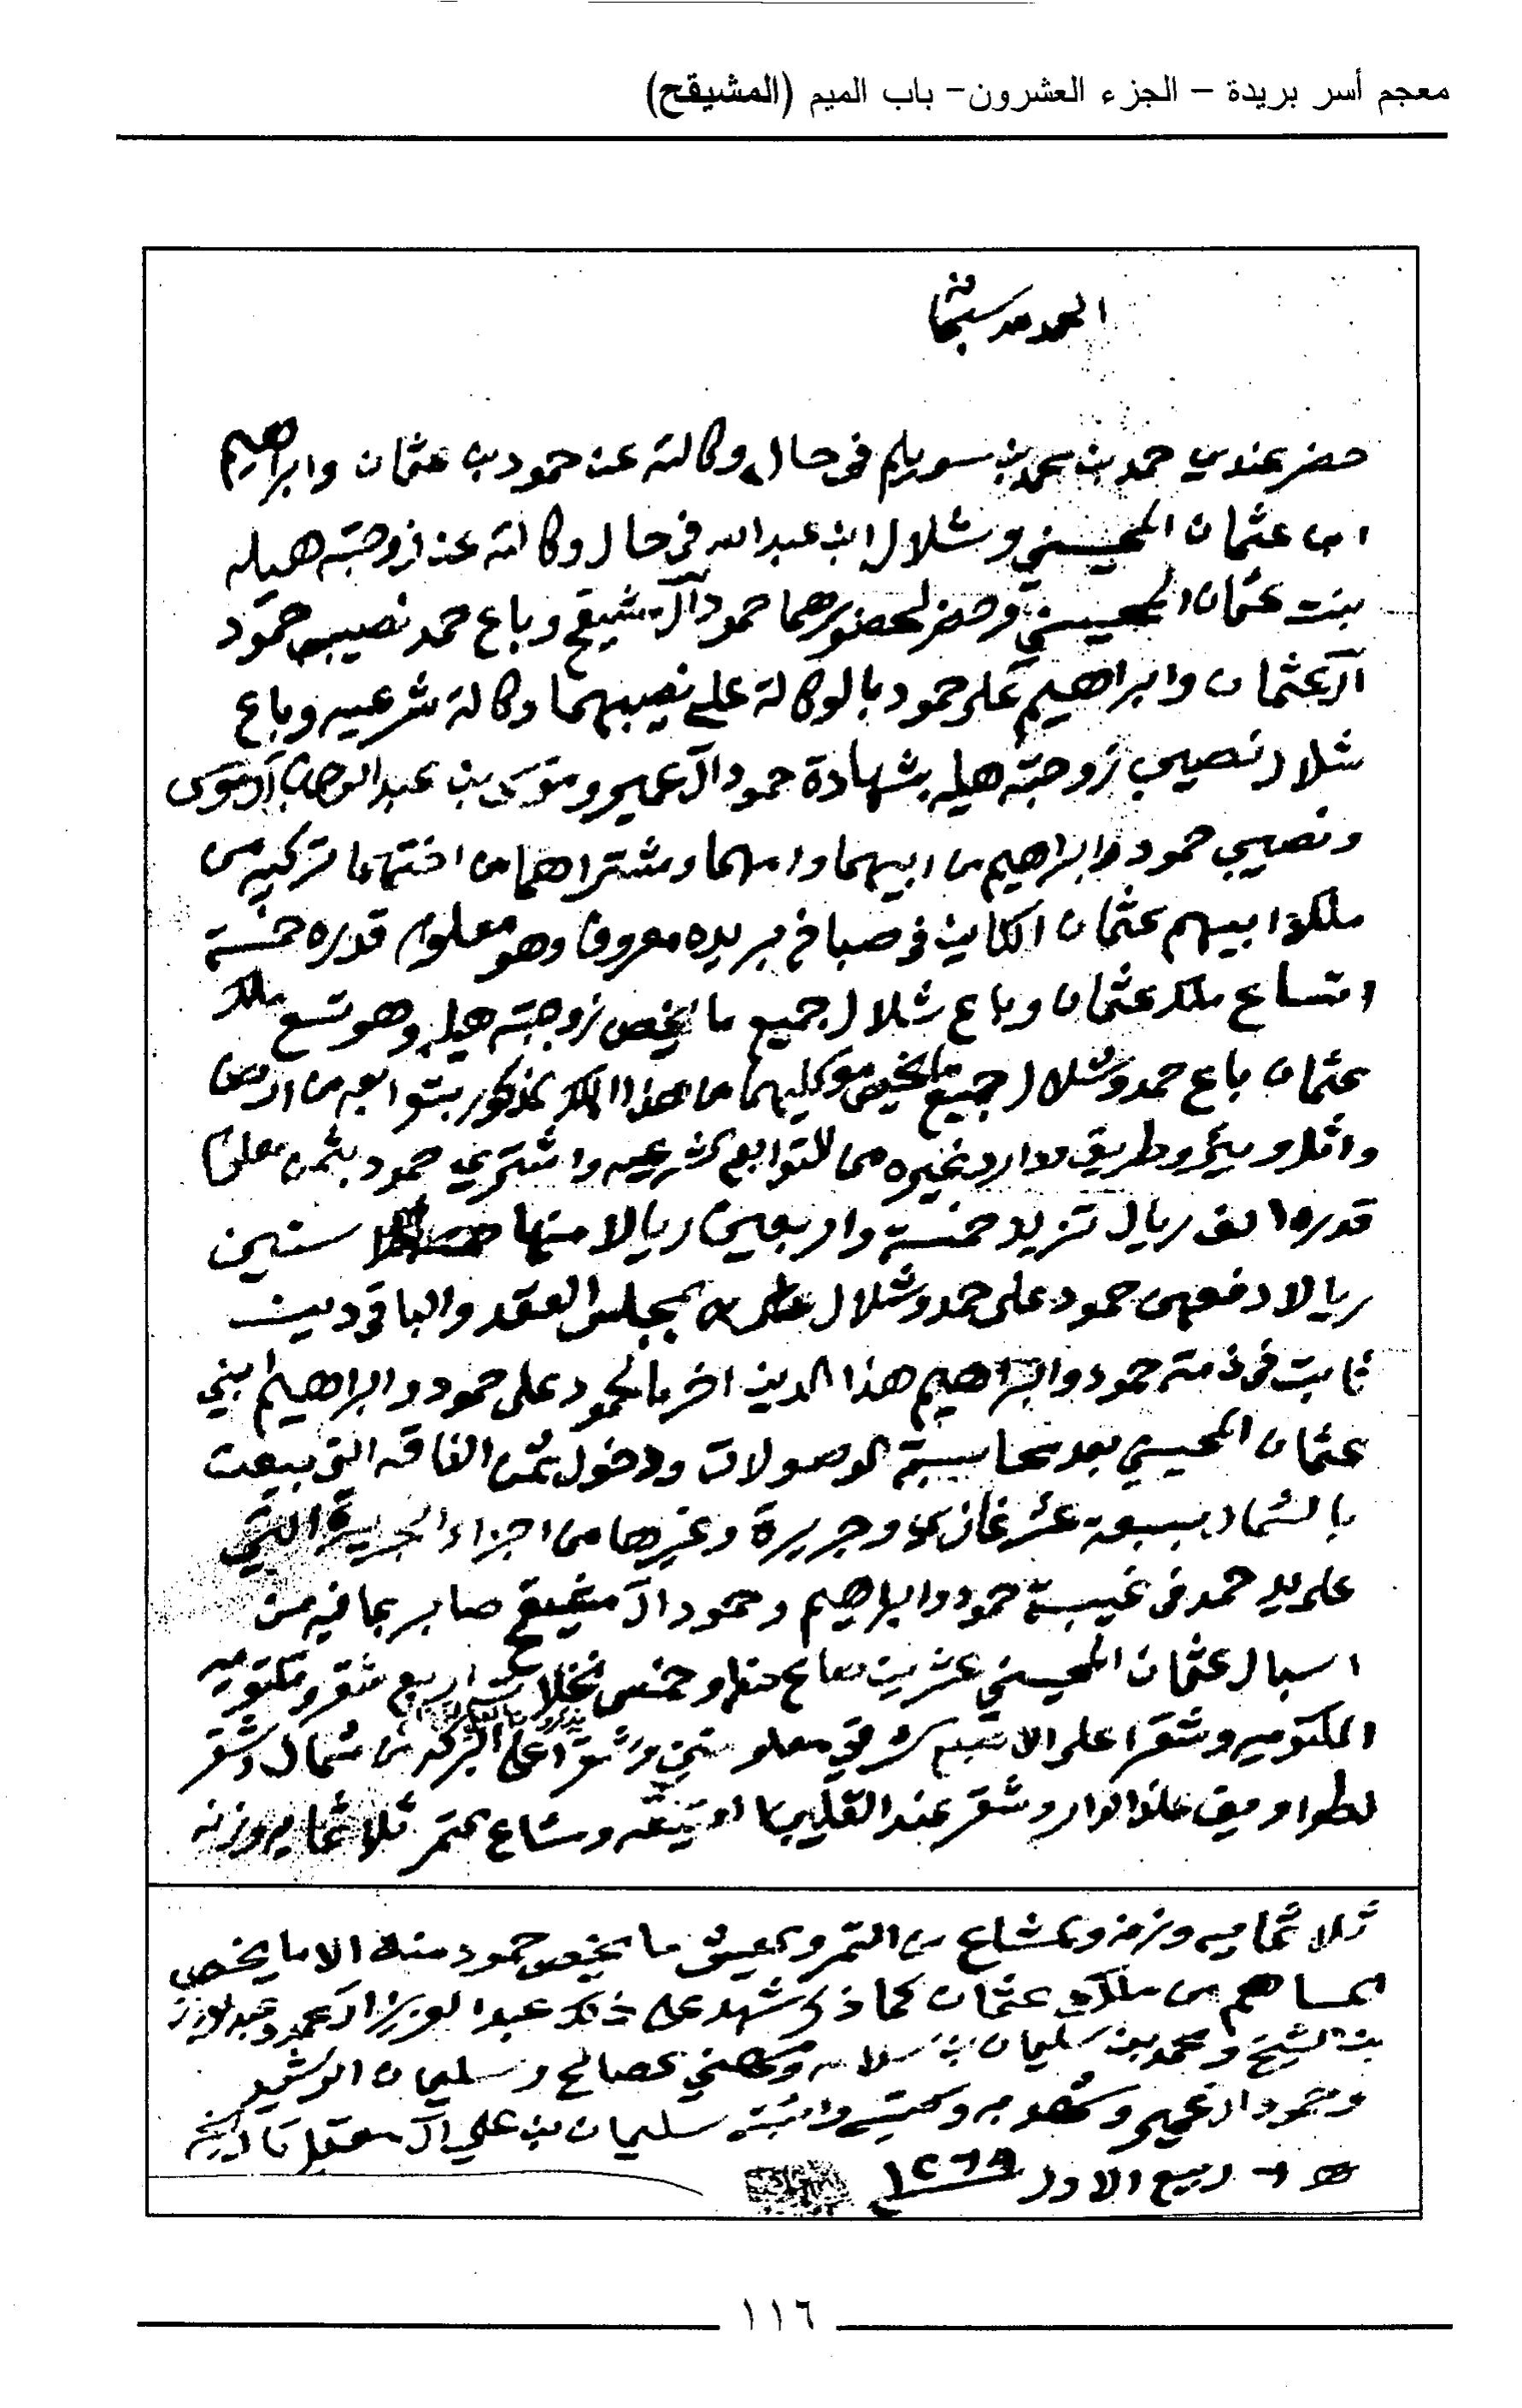 معجم أسر بريدة – الجزء العشرون– باب الميم (المشيقح)
الحمد لله سبحانه
حضر عندي حمد بن محمد بن سويلم في حال وكالته عن حمود بن عثمان وابراهيم
ابن عثمان المحيسني وشلال ابن عبدالله في حال وكالته عن زوجته هيله
بنت عثمان المحيسني وحضر لحضورهما حمود آل مشيقح وباع حمد نصيب حمود
آل عثمان وابراهيم على حمود بالوكالة على نصيبهما وكالة شرعيه وباع
شلال نصيب زوجته هيله بشهادة حمود آل عمير وموسى بن عبدالوهاب آل موسى
ونصيب حمود وابراهيم من ابيهما وامهما ومشتراهما من اختهما تركيه من
ملك ابيهم عثمان الكاين في صباخ بريده معروف وهو معلوم قدره خمسة
اتساع ملك عثمان وباع شلال جميع ما يخص زوجته هيله وهو تسع ملك
عثمان باع حمد وشلال جميع ما يخص موكليهما من هذا الملك المذكور بتوابعه من ارض
واثل وبير وطريق ودار وغيره من التوابع الشرعيه واشترى حمود بثمن معلوم
قدره الف ريال تزيد خمسة واربعين ريالا منها ستين
ريالا دفعهن حمود على حمد وشلال بمجلس العقد والباقي دين
ثابت في ذمة حمود وابراهيم هذا الدين اخر ما لحمود على حمود وابراهيم ابني
عثمان المحيسني بعد محاسبة الوصولات ودخول ثمن الناقه التي بيعت
بالشمال بسبعة عشر غازي وجريرة وغيرها من اجزاء الجريرة التي
على يد حمد في غيبة حمود وابراهيم وحمود آل مشيقح صابر بما فيه من
اسبال عثمان المحيسني عشرين صاع حنطه وخمس نخلات اربع شقر ومكتوميه
المكتوميه وشقرا على شرقي معلومتين وشقرا على البركه من شمال وشقر
وشقر عند القليب ومشاع بتمر ثلاثمايه وزنه
ثلاثمايه وزنه ومشاع من التمر والعيش ما يخص حمود منه الا ما يخص
المساهم من ملك عثمان كما ذكر شهد على ذلك عبدالعزيز آل وعبدالعزيز
بن الشيخ ومحمد بن سليمان بن سلامه ومهنى الصالح وسليمان الرشيد
وحمود آل عمير وشهد به وكتبه واثبته سليمان بن علي آل مقبل تاريخ
ربيع الاول ١٢٦٩
١١٦